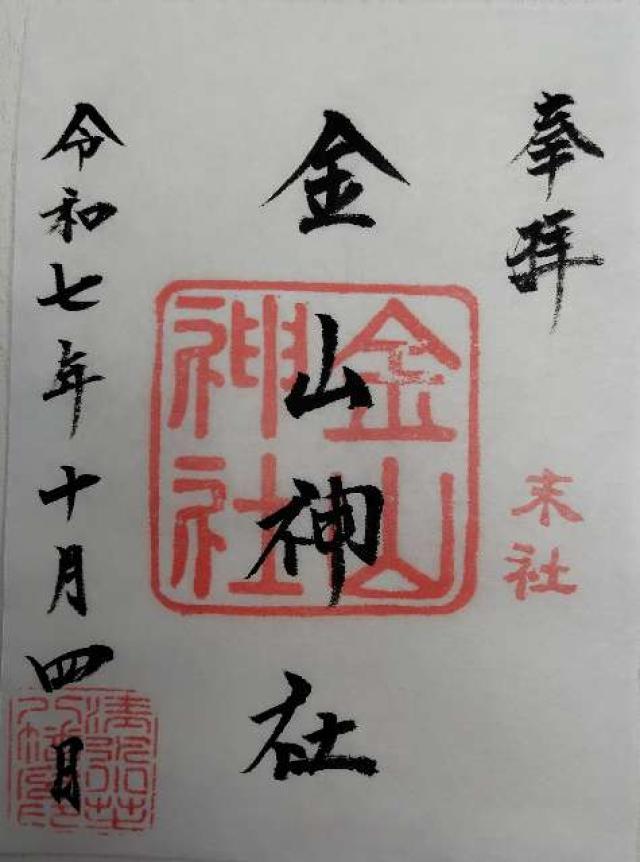 奉拝
末社
金山神社
金山神社
令和七年十月四日